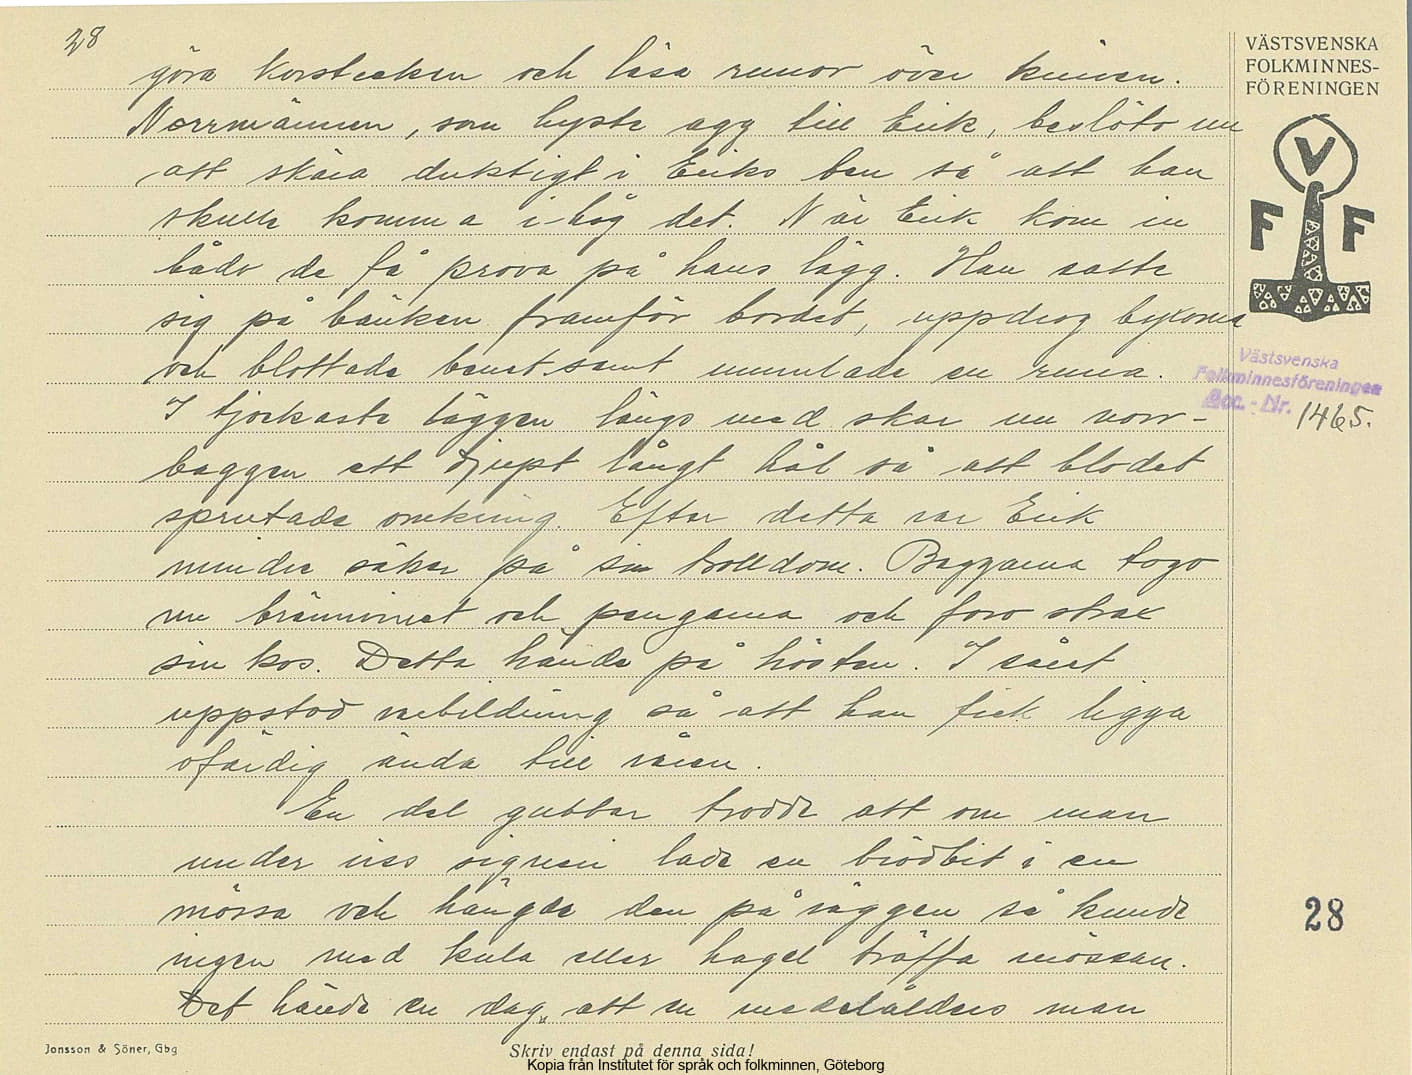 28
göra korstecken och läsa runor över kniven.
Norrmännen, som hyste agg till Erik, beslöto nu
att skära duktigt i Eriks ben så att han
skulle komma i-håg det. När Erik kom in
bådo de få prova på hans lägg. Han satte
sig på bänken framför bordet, uppdrog byxorna
och blottade benet samt mumlade en runa.
I tjockaste läggen längs med skar nu norr-
baggen ett djupt långt hål så att blodet
sprutade omkring. Efter detta var Erik
mindre säker på sin trolldom. Baggarna togo
nu brännvinet och pengarna och foro strax
sin kos. Detta hände på hösten. I såret
uppstod varbildning så att han fick ligga
ofärdig ända till våren.
En del gubbar trodde att om man
under viss signeri lade en brödbit i en
mössa och hängde den på väggen så kunde
ingen med kula eller hagel träffa mössan.
Det hände en dag, att en medelålders man
VÄSTSVENSKA
FOLKMINNES-
FÖRENINGEN
V
F F
Västsvenska
Folkminnesföreningen
Acc. - Nr. 1465.
28
Jonsson & Söner, Gbg
Skriv endast på denna sida!
Kopia från Institutet för språk och folkminnen, Göteborg